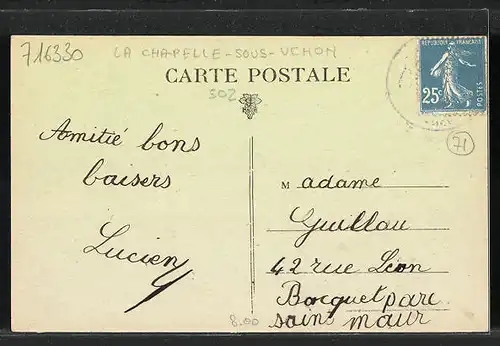 716330
LA CHAPELLE-SOUS-UCHON
CARTE POSTALE
502
REPUBLIQUE FRANCAISE
25c
POSTES
71
Amitié bons
baisers
Lucien
Madame
Guillau
42 rue Léon
Bocquet parc
saint maur
8.00